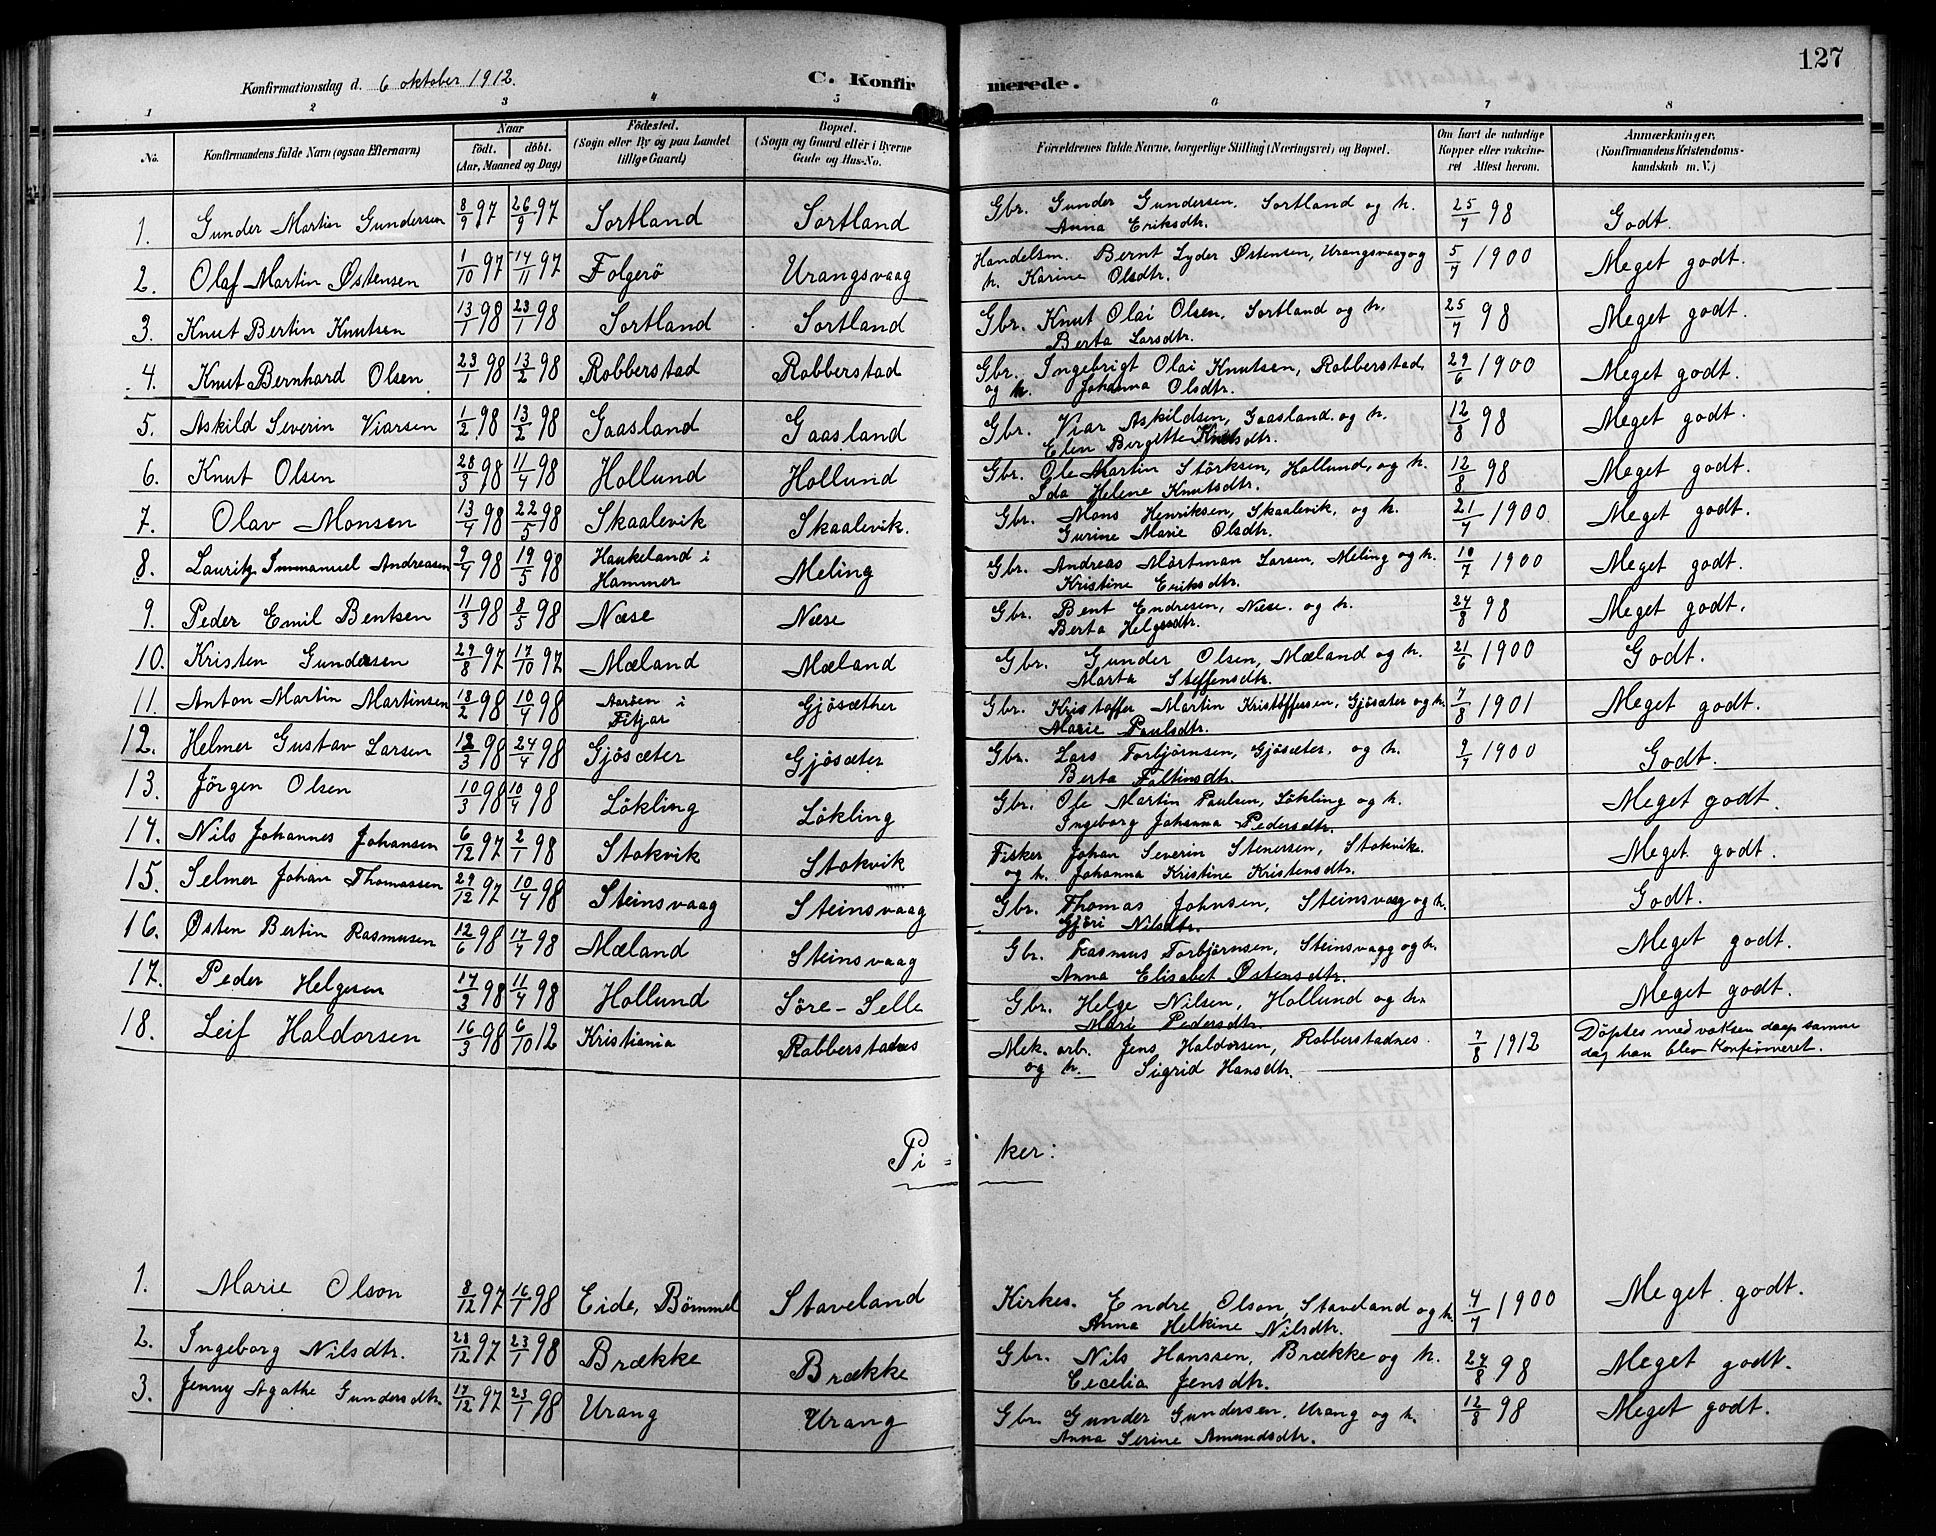 127
Konfirmationsdag d. 6 oktober 1912. C. Konfirmerede.
1 2 3 4 5 6 7 8
No. Konfirmandens fulde Navn (ogsaa Efternavn) Naar födt. döbt. (Aar, Maaned og Dag) Födested. (Sogn eller By og paa Landet tillige Gaard) Bopæl. (Sogn og Gaard eller i Byerne Gade og Hus-No. Forældrenes fulde Navne, borgerlige Stilling (Næringsvei) og Bopæl. Om havt de naturlige Kopper eller vakcineret Attest herom. Anmærkninger. (Konfirmandens Kristendomskundskab m. V.)
1. Gunder Martin Gundersen 8/9 97 26/9 97 Sortland Sortland Gbr. Gunder Gundersen, Sortland og h. 25/7 98 Godt.
Anna Eriksdtr.
2. Olaf Martin Østensen 1/10 97 14/11 97 Folgerö Urangsvaag Handelsm. Bernt Lyder Østensen, Urangsvaag og 5/7 1900 Meget godt.
h. Karine Olsdtr.
3. Knut Bertin Knutsen 13/1 98 23/1 98 Sortland Sortland Gbr. Knut Olai Olsen, Sortland og h. 25/7 98 Meget godt.
Berta Larsdtr.
4. Knut Bernhard Olsen 23/1 98 13/2 98 Robberstad Robberstad Gbr. Ingebrigt Olai Knutsen, Robberstad 29/6 1900 Meget godt.
og h. Johanna Olsdtr.
5. Askild Severin Viarsen 1/2 98 13/2 98 Gaasland Gaasland Gbr. Viar Askildsen, Gaasland og h. 12/8 98 Meget godt.
Elen Bergitte Knutsdtr.
6. Knut Olsen 28/3 98 11/4 98 Hollund Hollund Gbr. Ole Martin Störksen, Hollund, og h. 12/8 98 Meget godt.
Ida Helene Knutsdtr.
7. Olav Monsen 13/4 98 22/5 98 Skaalevik Skaalevik. Gbr. Mons Henriksen, Skaalevik, og h. 21/7 1900 Meget godt.
Gurine Marie Olsdtr.
8. Lauritz Immanuel Andreasen 9/4 98 19/5 98 Haukeland i Meling Gbr. Andreas Mårtman Larsen, Meling og h. 10/7 1900 Meget godt.
Hammer Kristine Eriksdtr.
9. Peder Emil Bentsen 11/3 98 8/5 98 Næse Næse Gbr. Bent Endresen, Næse. og h. 24/8 98 Meget godt.
Berta Helgesdtr.
10. Kristen Gundersen 29/8 97 17/10 97 Mæland Mæland Gbr. Gunder Olsen, Mæland og h. 21/6 1900 Godt.
Marta Steffensdtr.
11. Anton Martin Martinsen 18/2 98 10/4 98 Aaröen i Gjösæther Gbr. Kristoffer Martin Kristoffersen, Gjösæter og h. 7/8 1901 Meget godt.
Fitjar Marie Paulsdtr.
12. Helmer Gustav Larsen 98 24/4 98 Gjösæter Gjösæter Gbr. Lars Torbjørnsen, Gjösæter, og h. 9/7 1900 Godt.
Berta Faltinsdtr.
13. Jörgen Olsen 10/3 98 10/4 98 Lökling Lökling Gbr. Ole Martin Paulsen, Lökling og h. Meget godt.
Ingeborg Johanna Pedersdtr.
14. Nils Johannes Johansen 6/12 97 2/1 98 Stokvik Stokvik Fisker Johan Severin Stenersen, Stokvik Meget godt.
og h. Johanna Kristine Kristensdtr.
15. Selmer Johan Thomassen 29/12 97 10/4 98 Steinsvaag Steinsvaag Gbr. Thomas Johnsen, Steinsvaag og h. Godt.
Gjöri Nilsdtr.
16. Østen Bertin Rasmusen 12/6 98 17/7 98 Mæland Steinsvaag Gbr. Rasmus Torbjørnsen, Steinsvagg og h. Meget godt.
Anna Elisabet Østensdtr.
17. Peder Helgesen 17/3 98 11/4 98 Hollund Söre-Selle Gbr. Helge Nilsen, Hollund og h. Meget godt.
Mari Pedersdtr.
18. Leif Haldorsen 16/3 98 6/10 12 Kristiania Robberstadnes Mek. arb. Jens Haldorsen, Robberstadnes. 7/8 1912 Döptes med voksen daap samme
og h. Sigrid Hansdtr. dag han blev Konfirmeret.
Pi - ker:
1. Marie Olson 8/12 97 16/1 98 Eide, Bömmel Staveland Kirkes. Endre Olson, Staveland og h. 4/7 1900 Meget godt.
Anna Helkine Nilsdtr.
2. Ingeborg Nilsdtr. 28/12 97 23/1 98 Brække Brække Gbr. Nils Hanssen, Brække og h. 24/8 98 Meget godt.
Cecelia Jensdtr.
3. Jenny Agathe Gundersdtr. 17/12 97 23/1 98 Urang Urang Gbr. Gunder Gundersen, Urang og h. 12/8 98 Meget godt.
Anna Serine Amundsdtr.